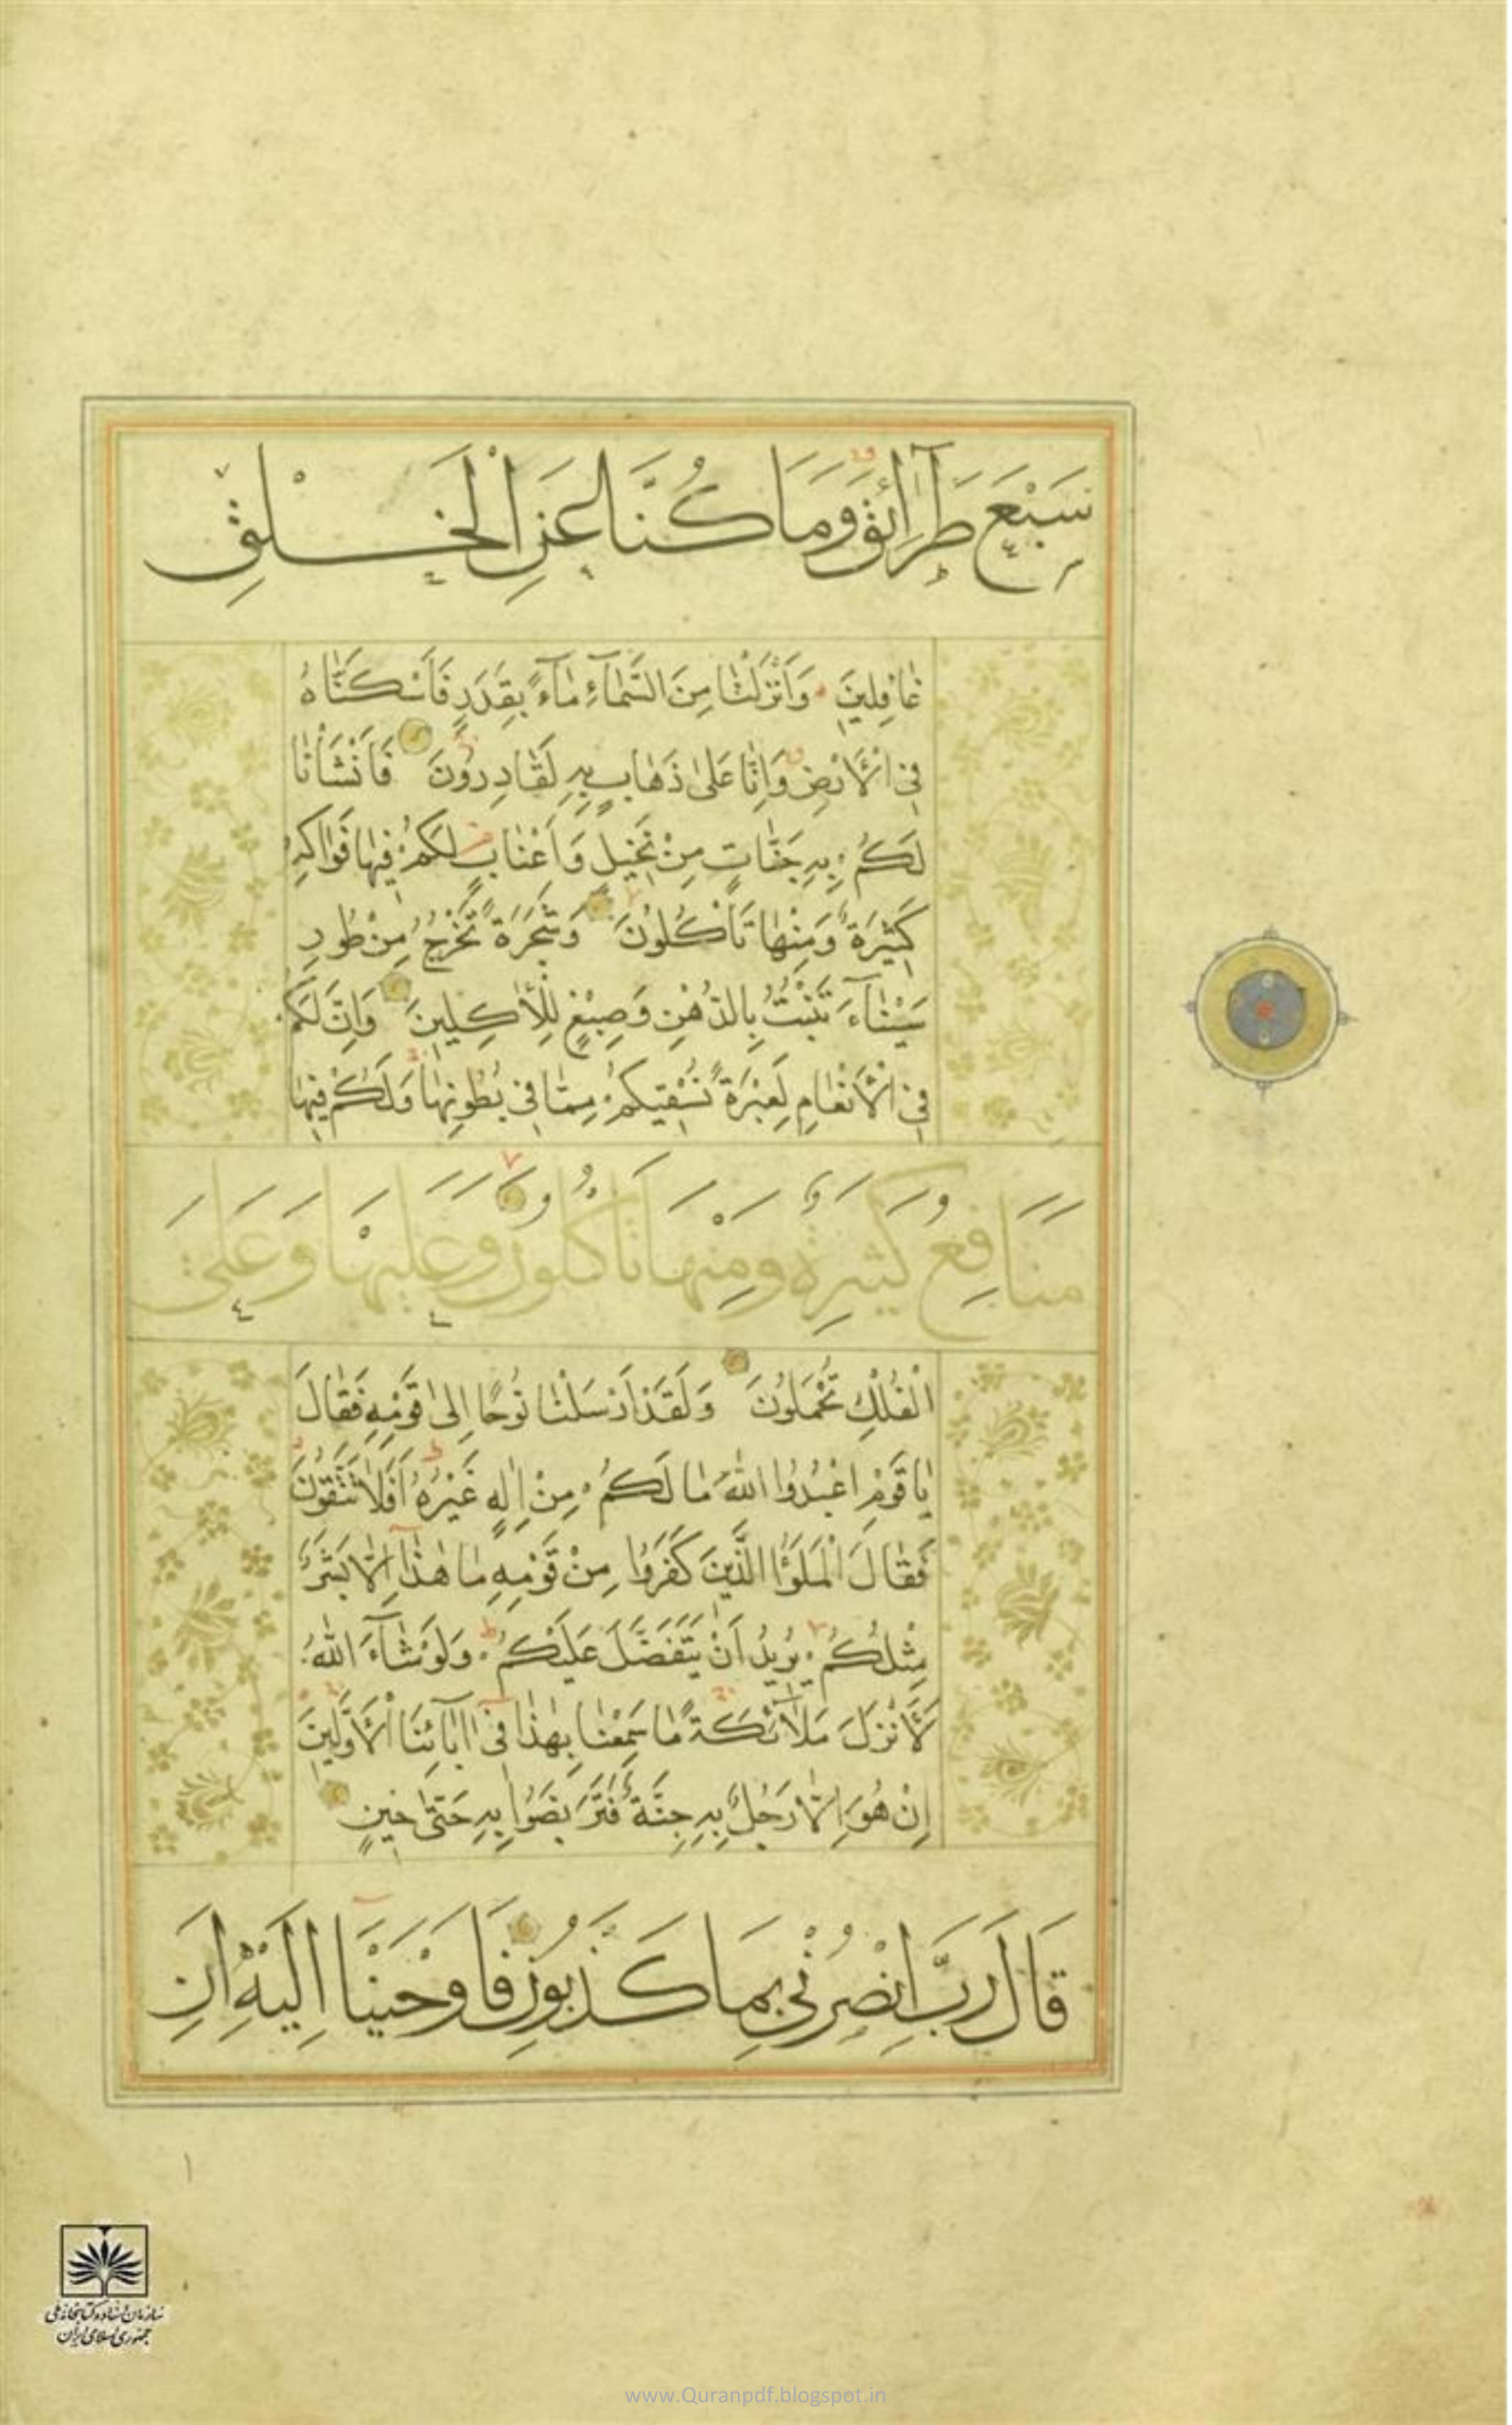 سَبْعَ طَرَآئِقَ وَمَا كُنَّا عَنِ الْخَلْقِ
غَافِلِينَ وَاَنْزَلْنَا مِنَ السَّمَآءِ مَآءً بِقَدَرٍ فَاَسْكَنَّاهُ
فِي الْاَرْضِ وَاِنَّا عَلىٰ ذَهَابٍ بِهِ لَقَادِرُونَ فَاَنْشَاْنَا
لَكُمْ بِهِ جَنَّاتٍ مِنْ نَخِيلٍ وَاَعْنَابٍ لَكُمْ فِيهَا فَوَاكِهُ
كَثِيرَةٌ وَمِنْهَا تَاْكُلُونَ وَشَجَرَةً تَخْرُجُ مِنْ طُورِ
سَيْنَآءَ تَنْبُتُ بِالدُّهْنِ وَصِبْغٍ لِلْاٰكِلِينَ وَاِنَّ لَكُمْ
فِي الْاَنْعَامِ لَعِبْرَةً نُسْقِيكُمْ مِمَّا فِي بُطُونِهَا وَلَكُمْ فِيهَا
مَنَافِعُ كَثِيرَةٌ وَمِنْهَا تَاْكُلُونَ وَعَلَيْهَا وَعَلَى
الْفُلْكِ تُحْمَلُونَ وَلَقَدْ اَرْسَلْنَا نُوحًا اِلىٰ قَوْمِهِ فَقَالَ
يَا قَوْمِ اعْبُدُوا اللّٰهَ مَا لَكُمْ مِنْ اِلٰهٍ غَيْرُهُ اَفَلَا تَتَّقُونَ
فَقَالَ الْمَلَؤُا الَّذِينَ كَفَرُوا مِنْ قَوْمِهِ مَا هٰذَآ اِلَّا بَشَرٌ
مِثْلُكُمْ يُرِيدُ اَنْ يَتَفَضَّلَ عَلَيْكُمْ وَلَوْ شَآءَ اللّٰهُ
لَاَنْزَلَ مَلَآئِكَةً مَا سَمِعْنَا بِهٰذَا فِي اٰبَآئِنَا الْاَوَّلِينَ
اِنْ هُوَ اِلَّا رَجُلٌ بِهِ جِنَّةٌ فَتَرَبَّصُوا بِهِ حَتّىٰ حِينٍ
قَالَ رَبِّ انْصُرْنِي بِمَا كَذَّبُونِ فَاَوْحَيْنَآ اِلَيْهِ اَنِ
۱
سازمان اسناد و کتابخانه ملی
جمهوری اسلامی ایران
www.Quranpdf.blogspot.in